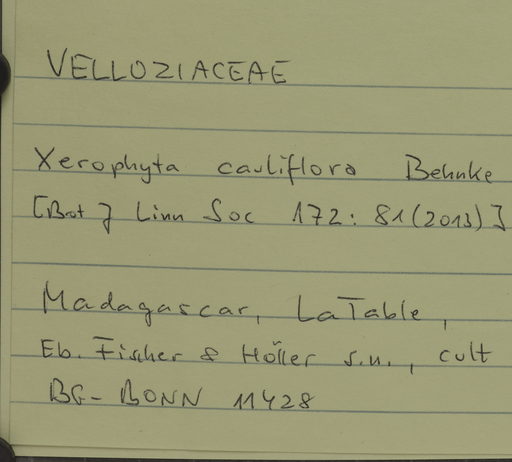 VELLOZIACEAE
Xerophyta cauliflora Behnke
[Bot J Linn Soc 172: 81(2013)]
Madagascar, LaTable,
Eb. Fischer & Höller s.n., cult
BG-BONN 11428